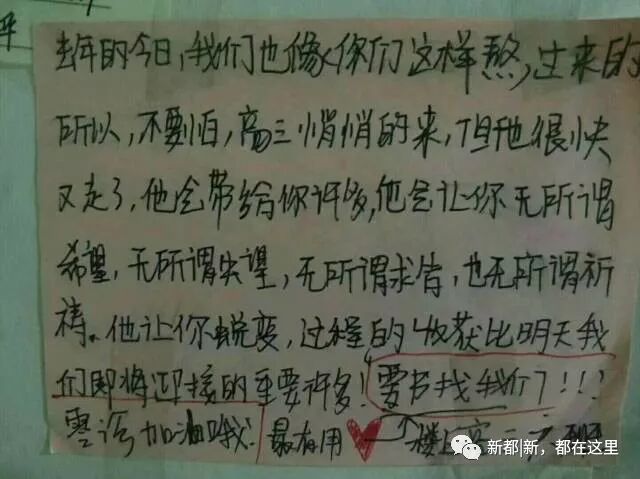 乎
去年的今日,我们也像你们这样熬,过来的
所以,不要怕,高三悄悄的来,但他很快
又走了,他会带给你许多,他会让你无所谓
希望,无所谓失望,无所谓求告,也无所谓祈
祷。他让你蜕变,过程的收获比明天我
们即将迎接的重要许多!要书找我们了!!!
零诊加油哦! 最有用 楼上高三
新都|新,都在这里